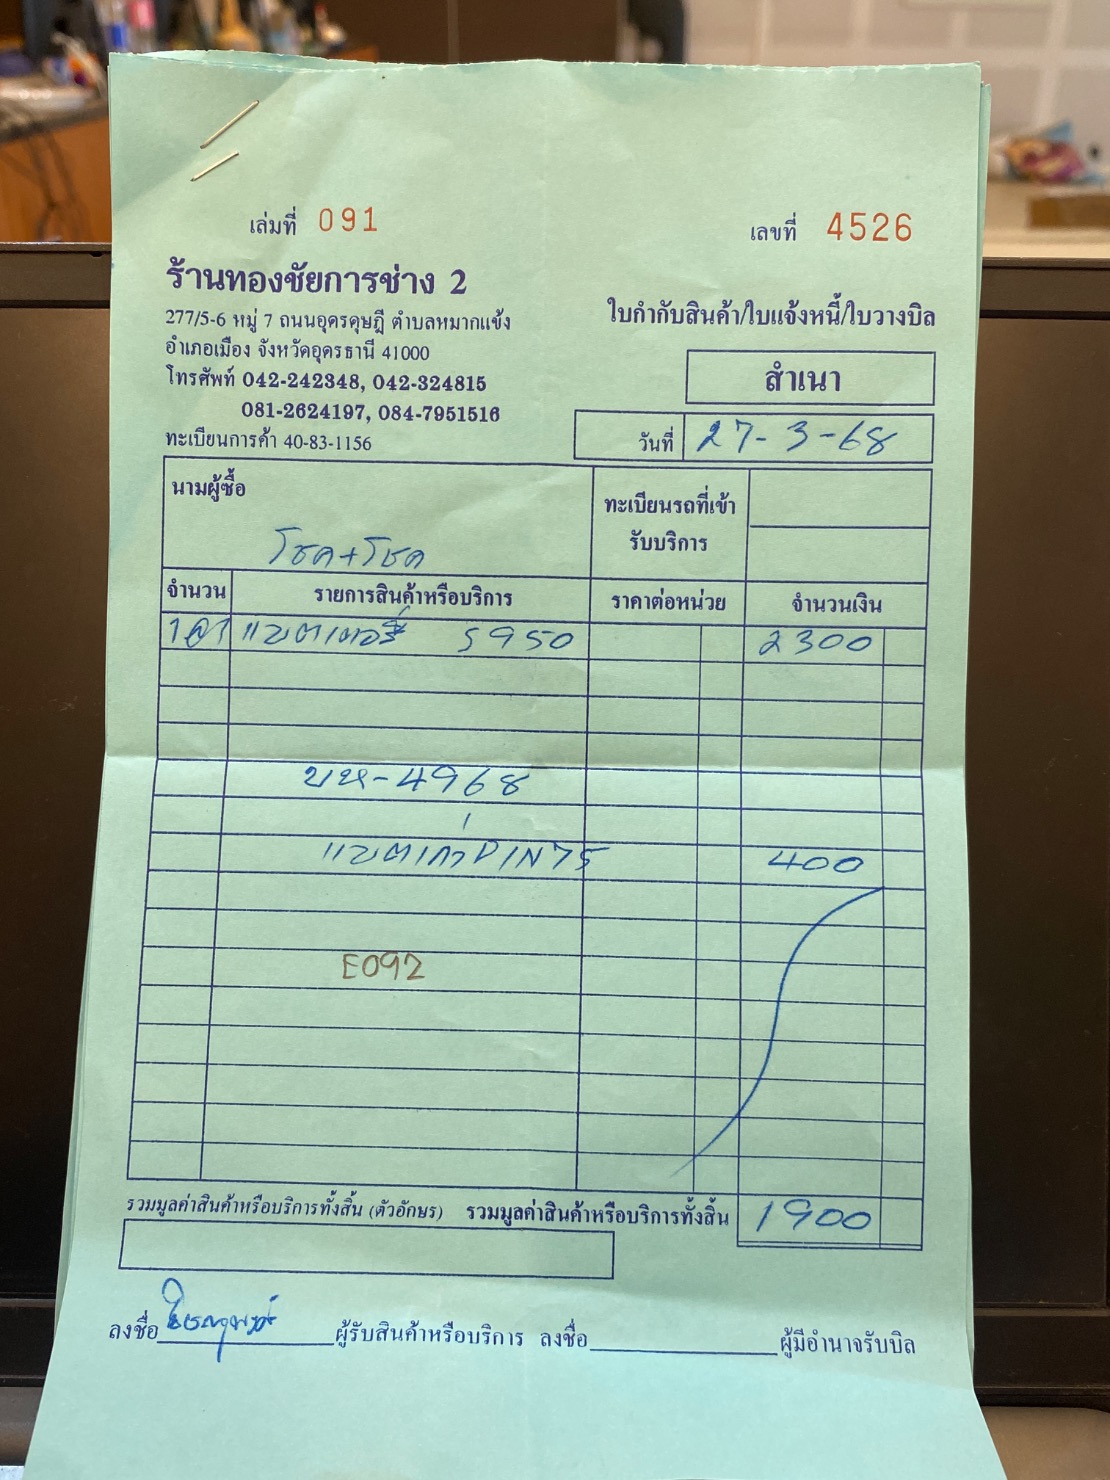 เล่มที่ 091
เลขที่ 4526
ร้านทองชัยการช่าง 2
277/5-6 หมู่ 7 ถนนอุดรดุษฎี ตำบลหมากแข้ง
อำเภอเมือง จังหวัดอุดรธานี 41000
โทรศัพท์ 042-242348, 042-324815
081-2624197, 084-7951516
ทะเบียนการค้า 40-83-1156
ใบกำกับสินค้า/ใบแจ้งหนี้/ใบวางบิล
สำเนา
วันที่ 27-3-68
นามผู้ซื้อ
โชค+โชค
ทะเบียนรถที่เข้า
รับบริการ
จำนวน รายการสินค้าหรือบริการ ราคาต่อหน่วย จำนวนเงิน
1 แบตเตอรี่ 5950 2300
บห-4968
แบตเก่า DIN75 400
E092
รวมมูลค่าสินค้าหรือบริการทั้งสิ้น (ตัวอักษร) รวมมูลค่าสินค้าหรือบริการทั้งสิ้น 1900
ลงชื่อ ผู้รับสินค้าหรือบริการ ลงชื่อ ผู้มีอำนาจรับบิล